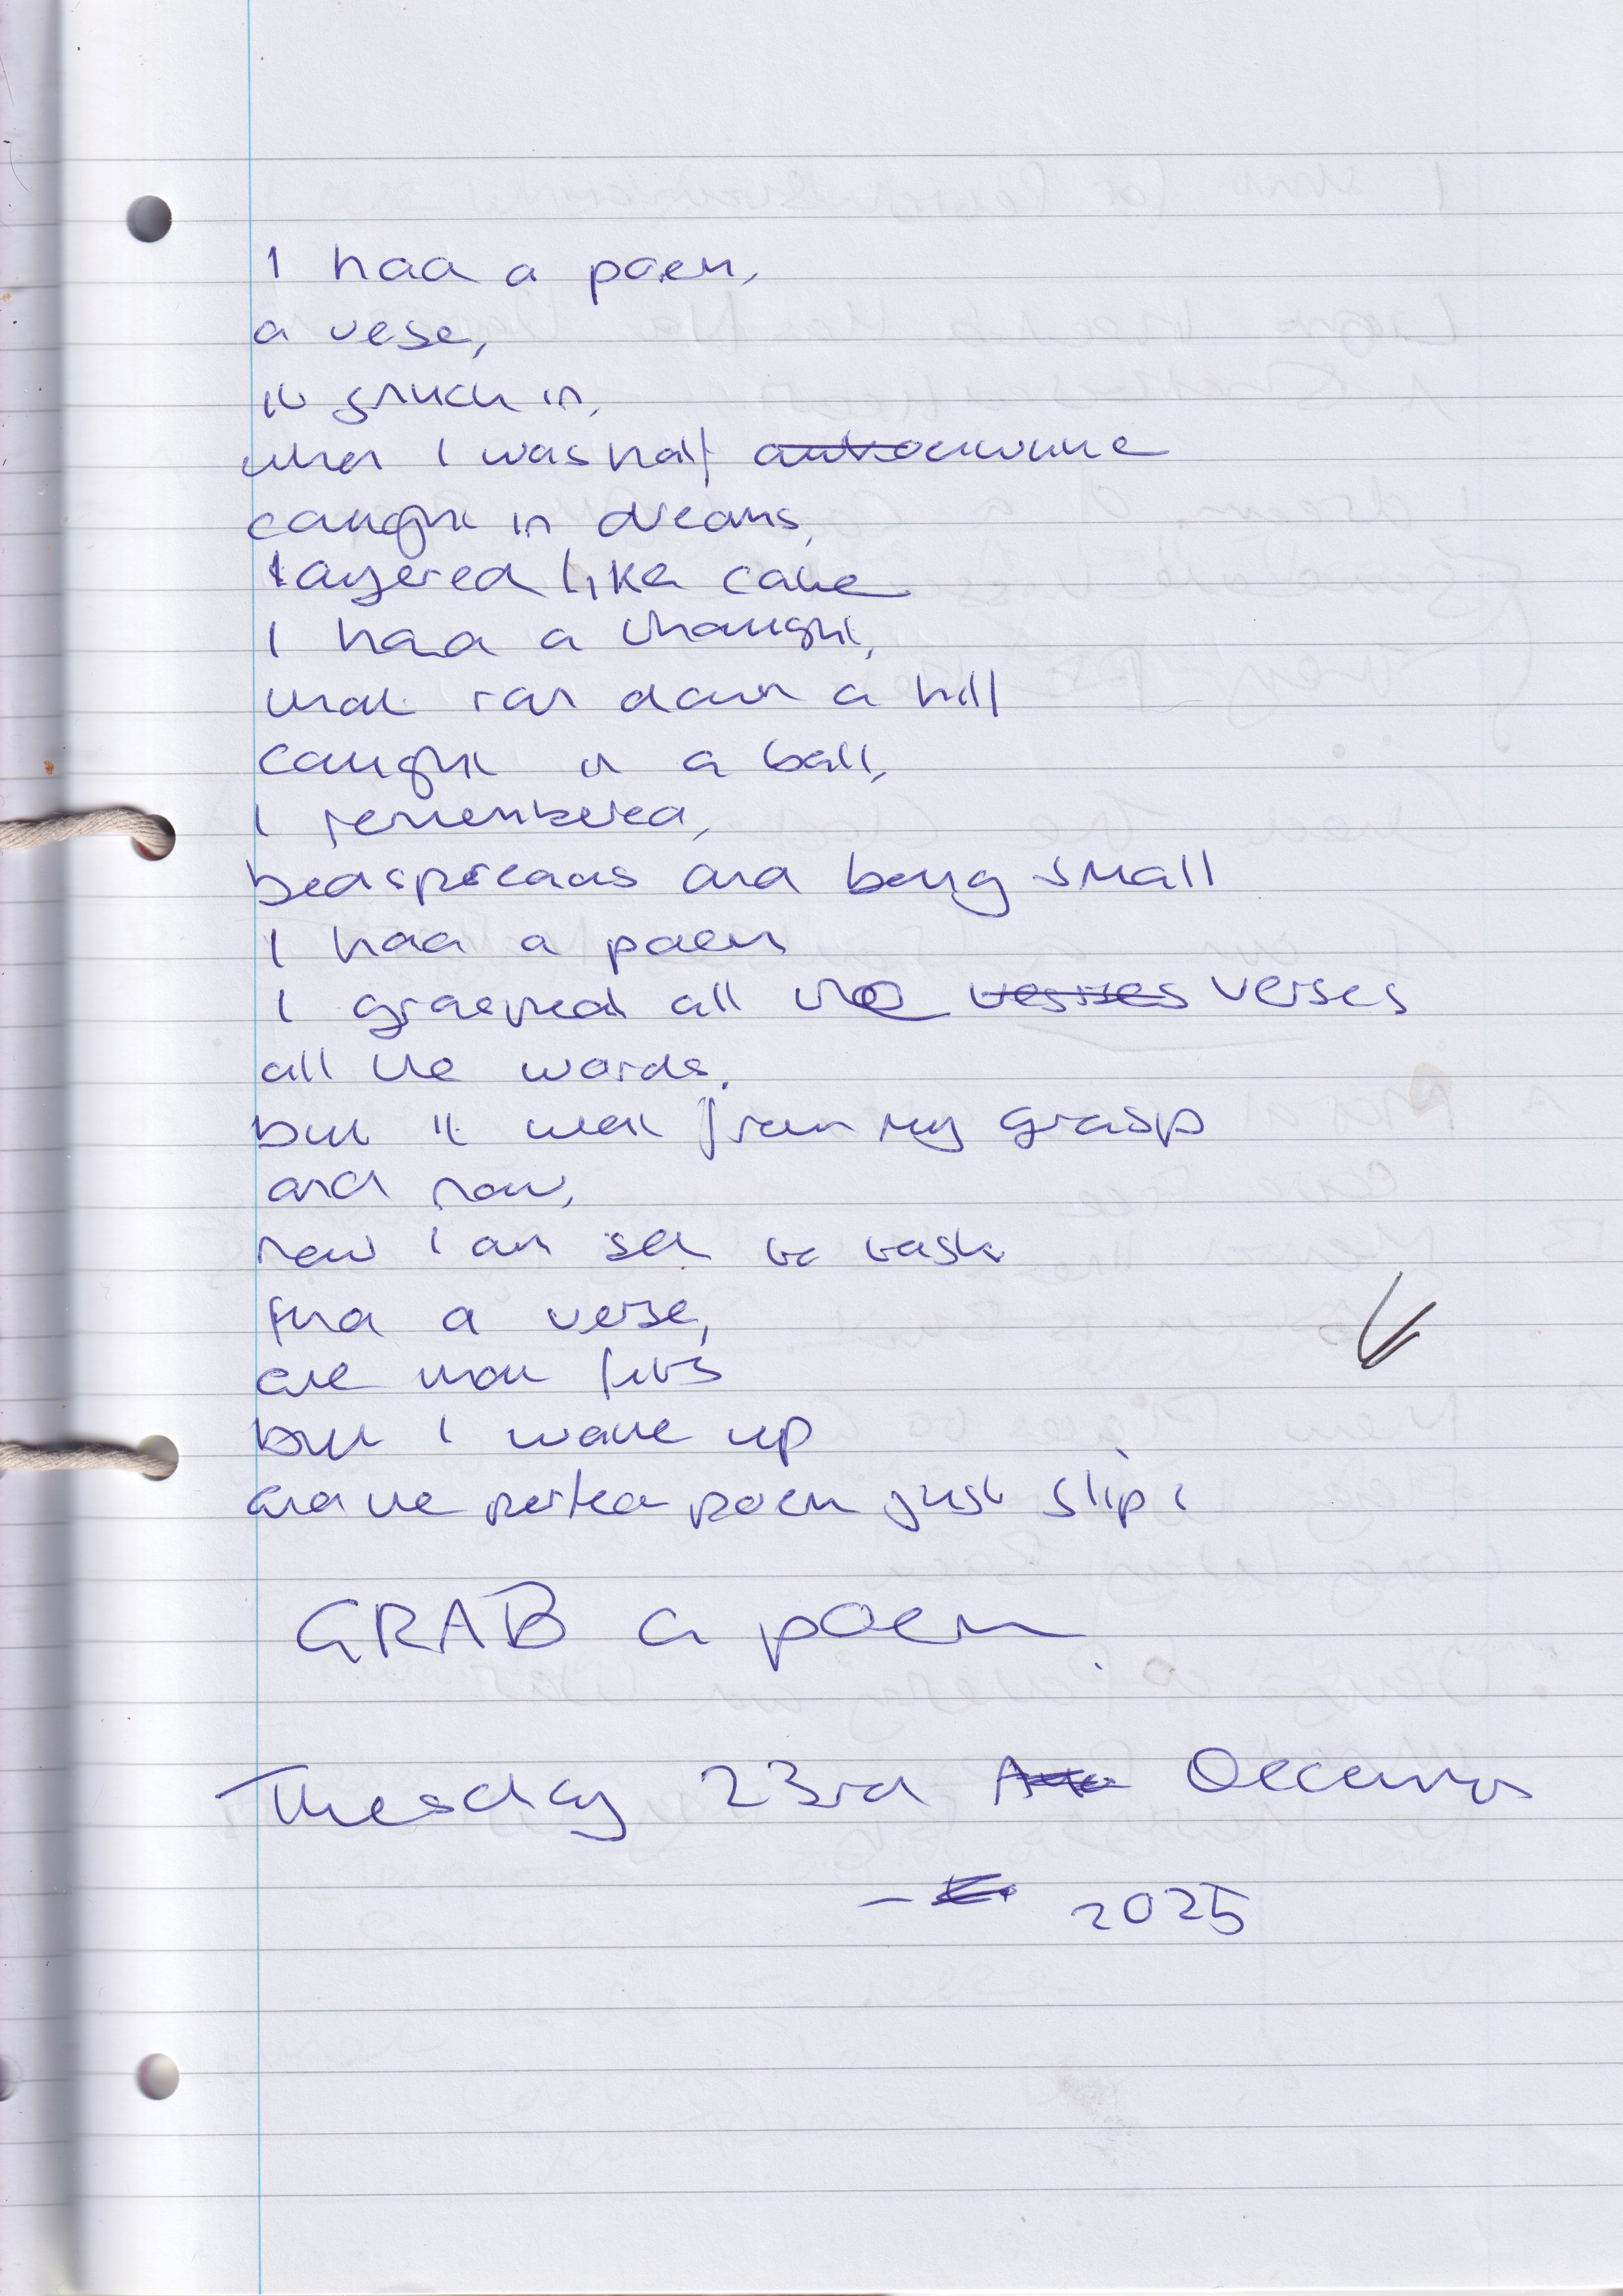 I had a poem,
a verse,
it snuck in,
when I was half awake
caught in dreams,
layered like cake
I had a thought,
that ran down a hill
caught in a ball,
I remembered,
bedspreads and being small
I had a poem
I grasped all the verses verses
all the words,
but it went from my grasp
and now,
now I am set to task
find a verse,
one that fits
but I wake up
and the perfect poem just slips
GRAB a poem.
Tuesday 23rd December
- 2025